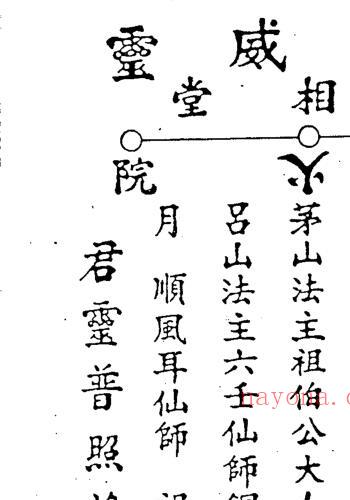 威靈
相堂
火院
茅山法主祖伯公大
呂山法主六壬仙師
月順風耳仙師
君靈普照
nayona.c